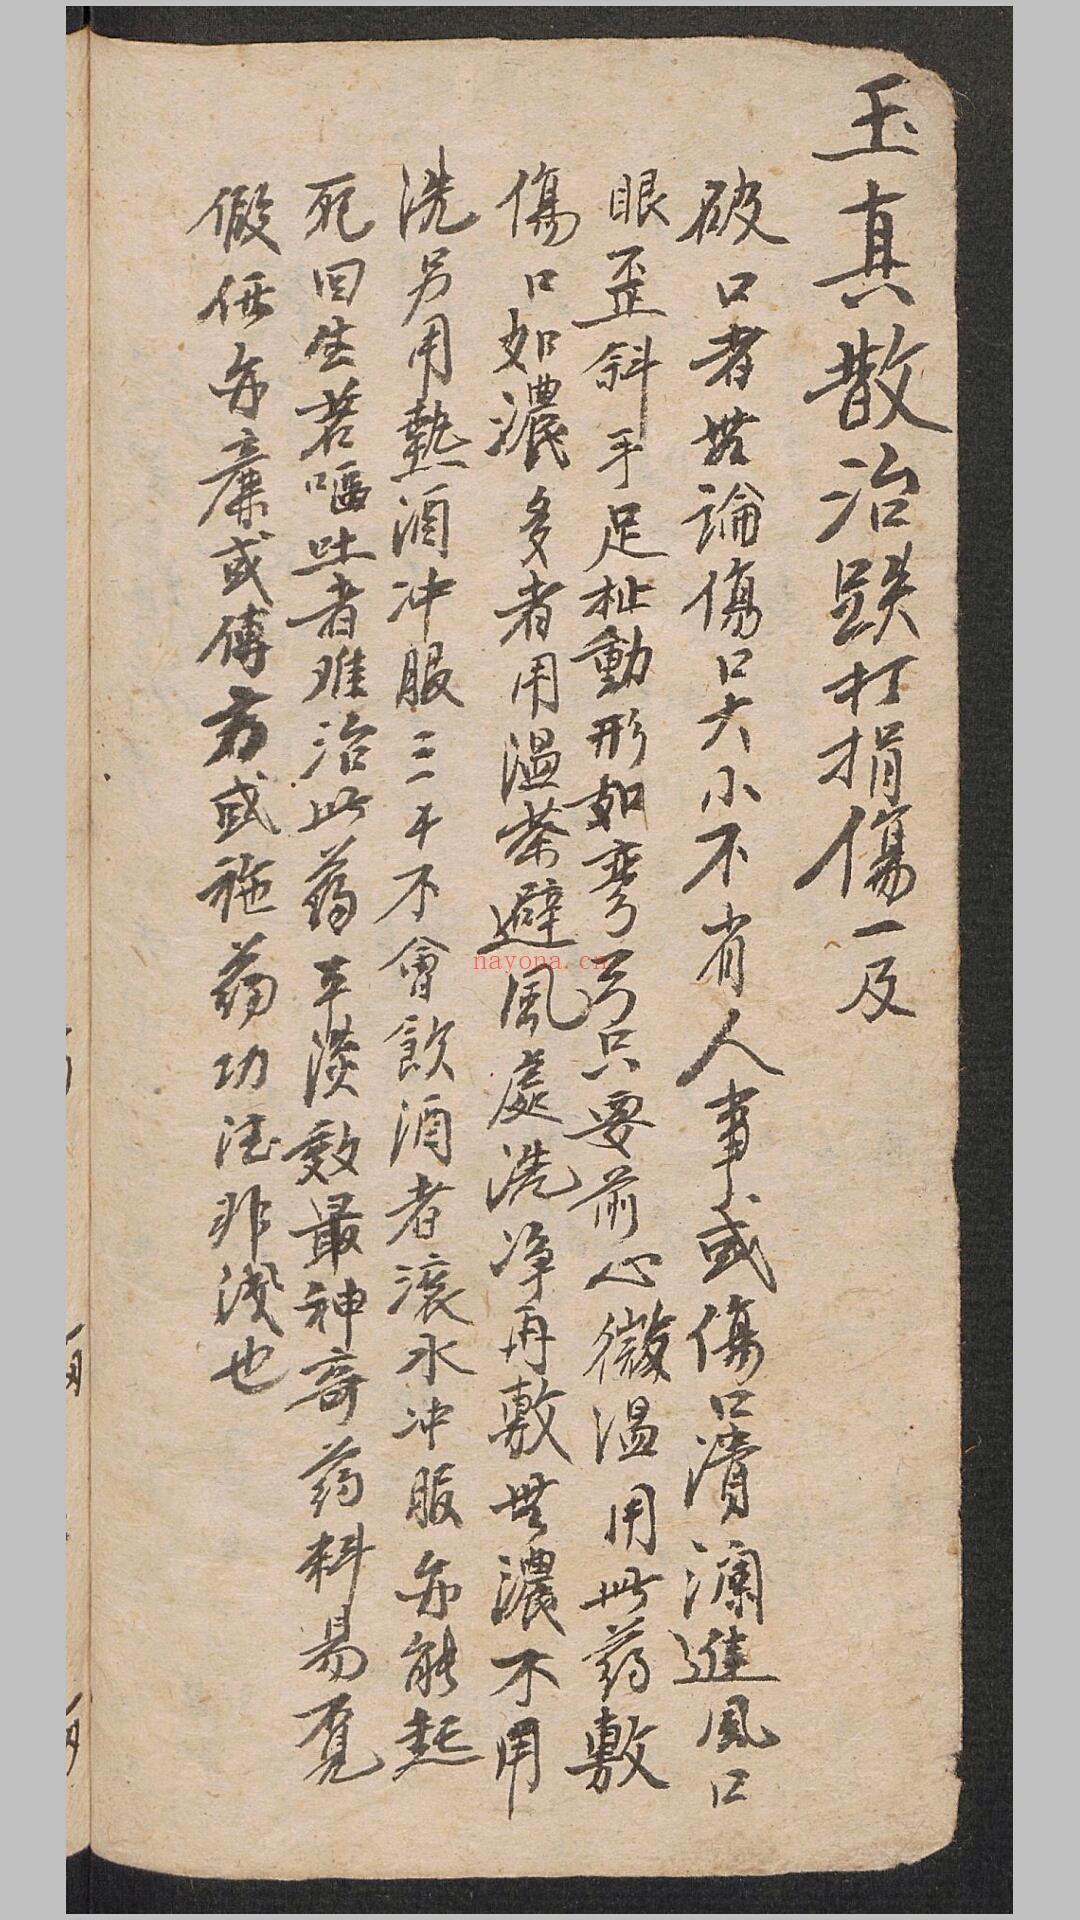 玉真散治跌打損傷一及
破口者無論傷口大小不省人事或傷口潰瀾進風口
眼歪斜手足扯動形如彎弓只要前心微温用此药敷
傷口如濃多者用温茶避風處洗净再敷無濃不用
洗另用熱酒冲服三不會飲酒者滾水冲服亦能起
死回生若嘔吐者难治此药平淡效最神奇药料易覓
價亦廉或傳方或施药功德非淺也
nayona.cn